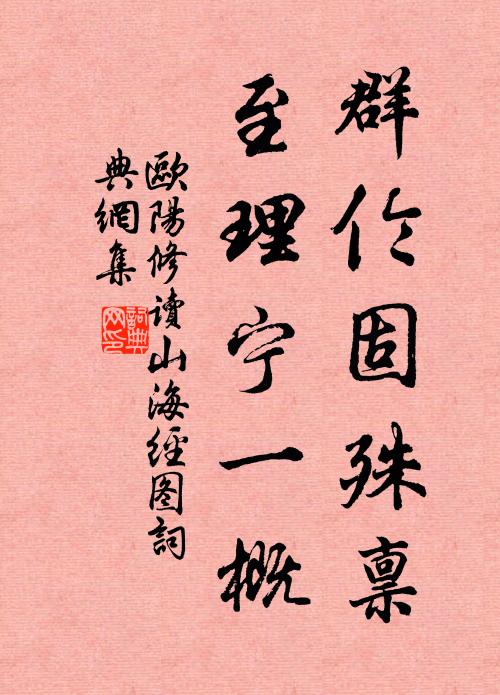 群伦固殊禀
至理宁一概
歐陽修读山海經图詞
典網集
詞典
网印